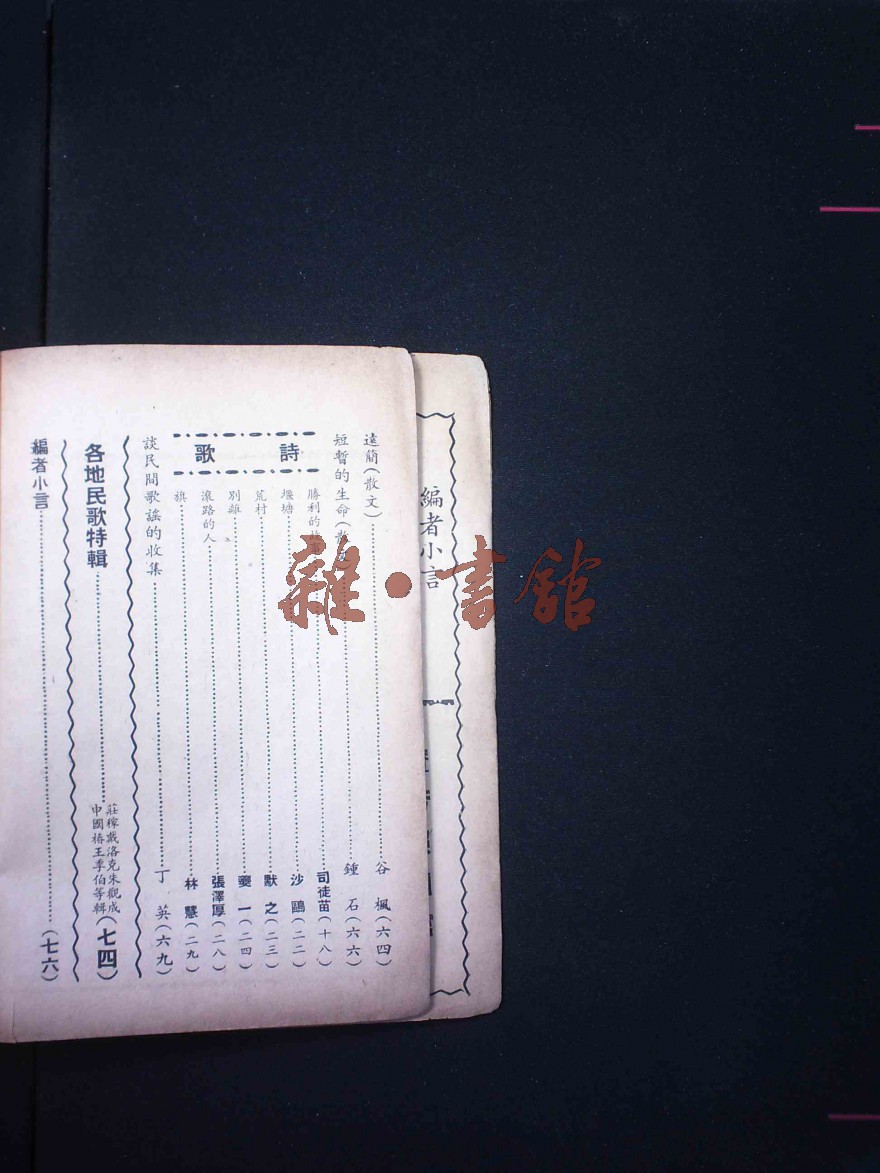 遠簡(散文)谷楓(六四)
短暫的生命 鍾石(六六)
詩歌
勝利的 司徒苗(十八)
堰塘 沙鷗(二二)
荒村 默之(二三)
別離 一(二四)
滾路的人 張澤厚(二八)
旗 林慧(二九)
談民間歌謠的收集 丁英(六九)
各地民歌特輯 莊稼戴洛克朱觀成
申國椿王季伯等輯(七四)
編者小言(七六)
編者小言
雜·書館